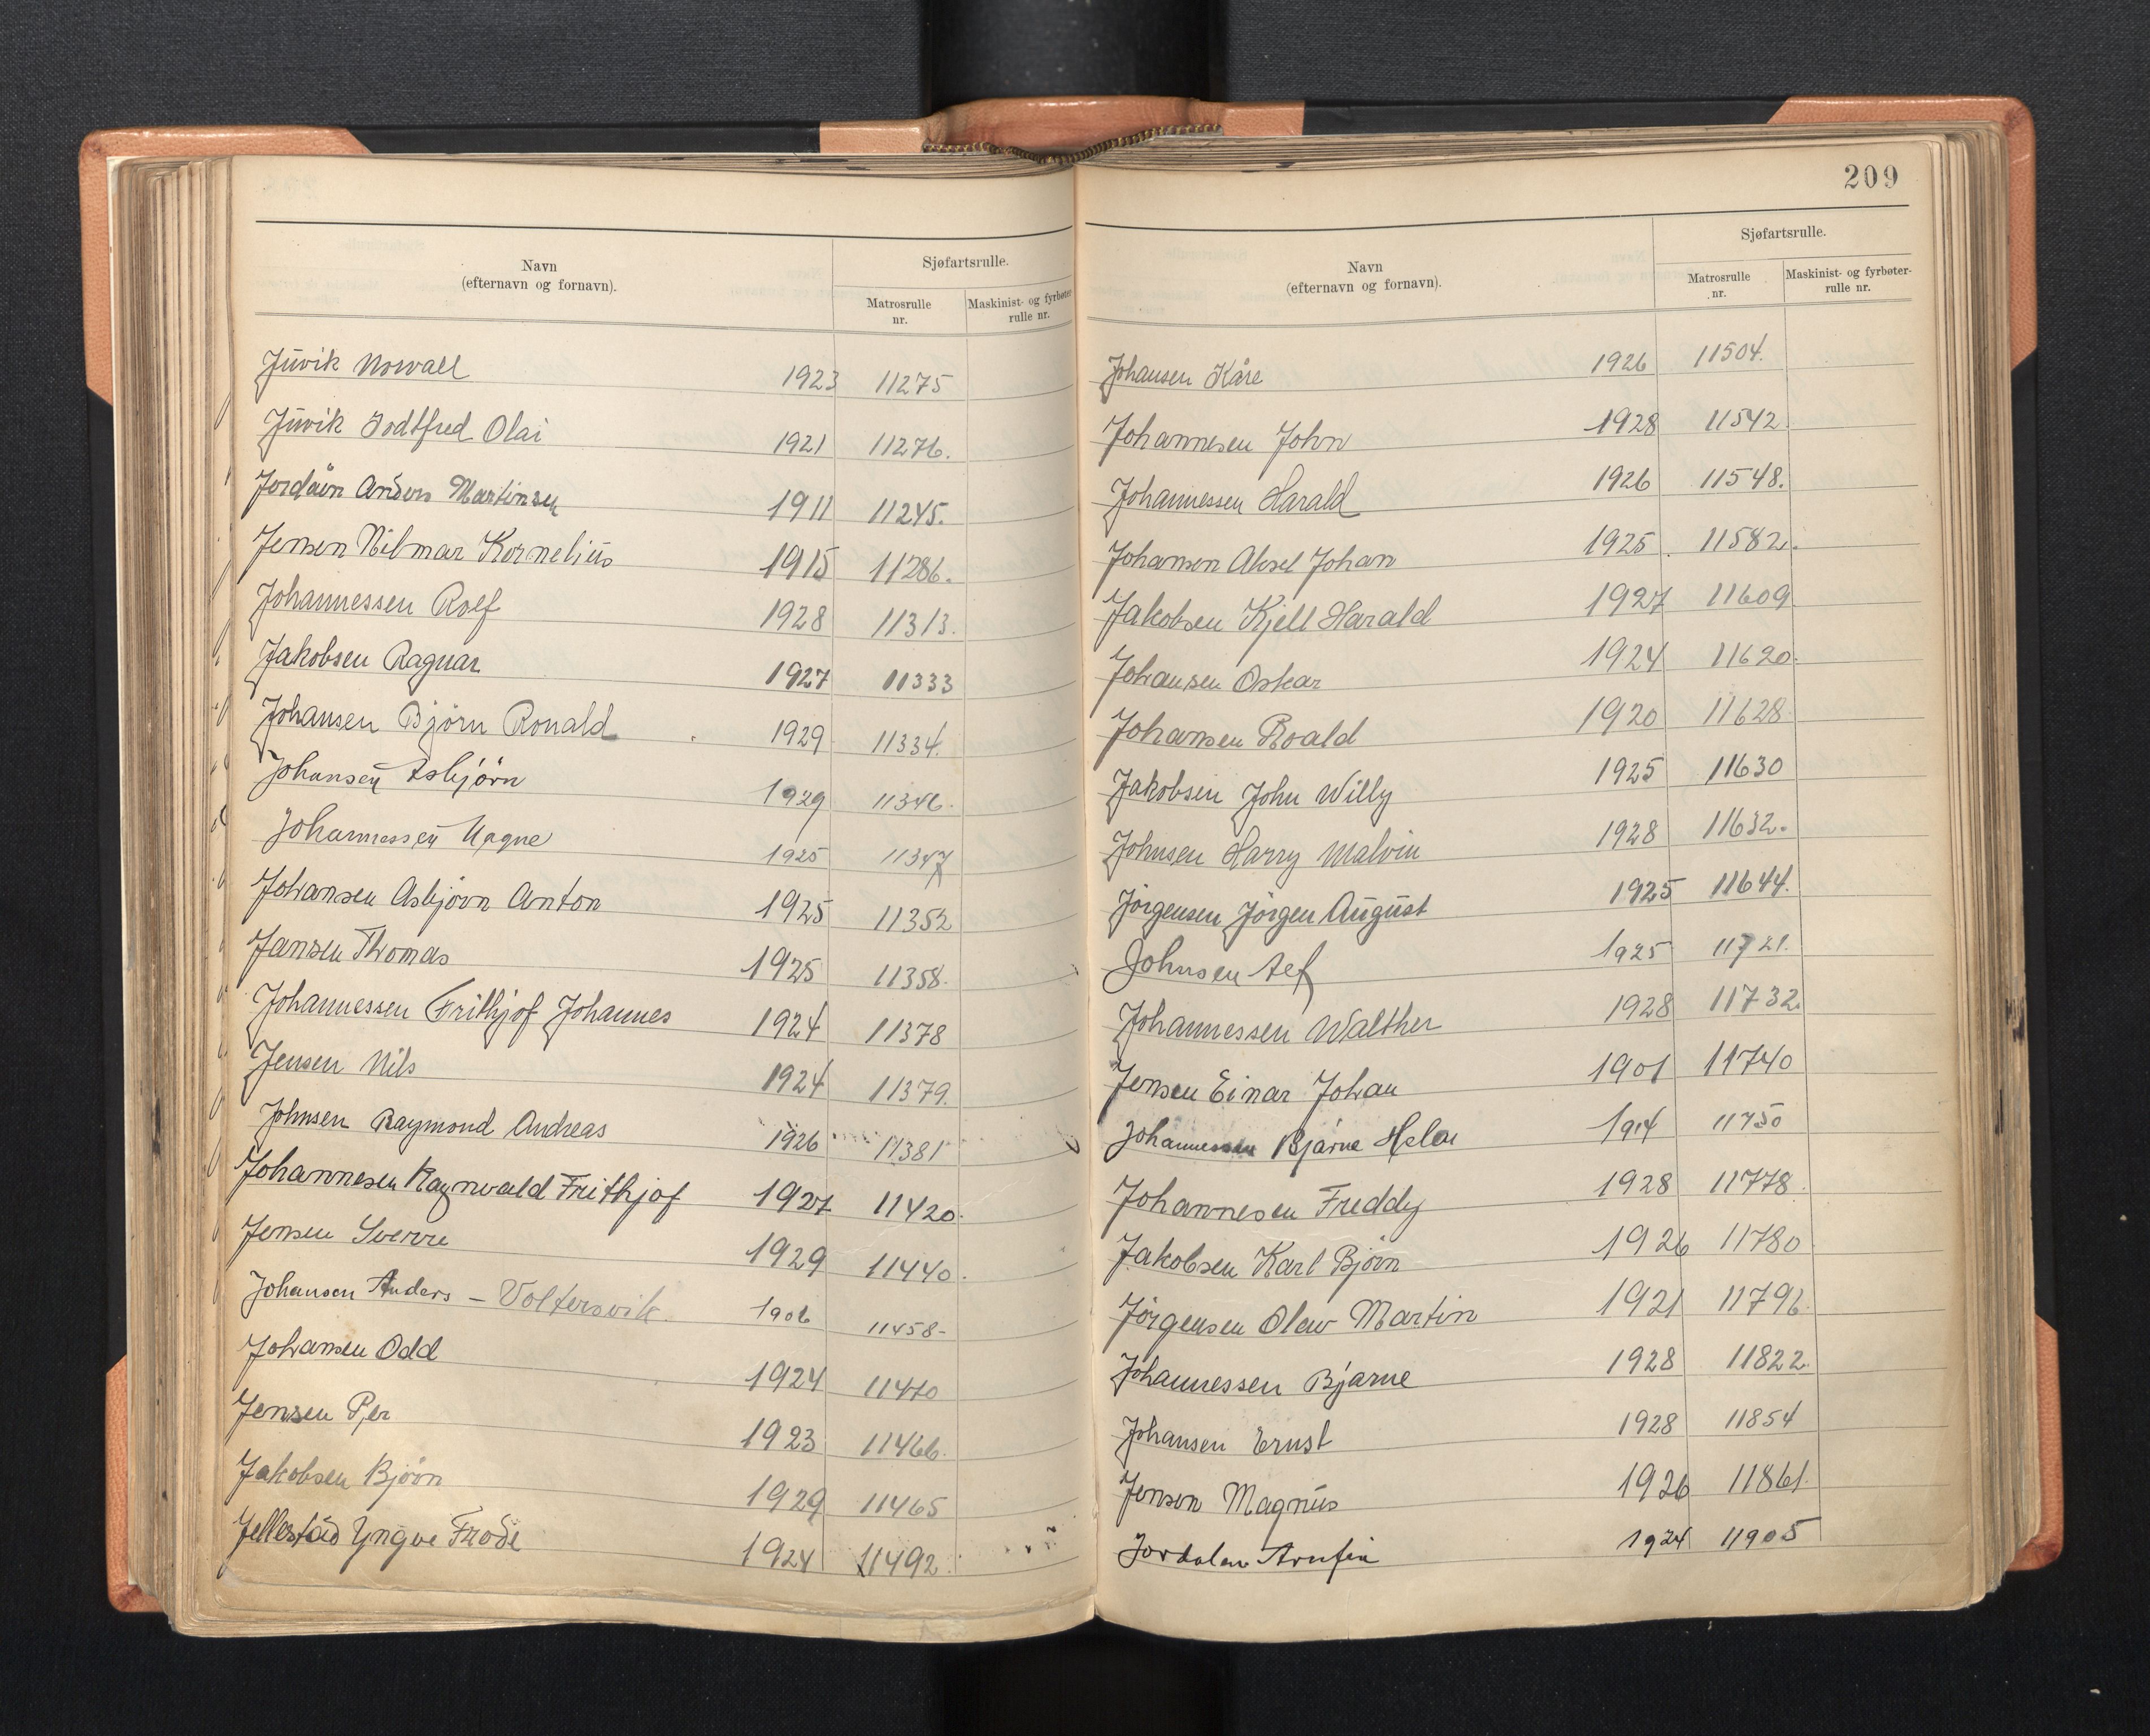 Navn
(efternavn og fornavn).
Sjøfartsrulle.
Matrosrulle
nr.
Maskinist- og fyrbøter-
rulle nr.
Juvik Norvall 1923 11275
Juvik Godtfred Olai 1921 11276.
Anders Martinsen 1911 11245.
Jensen Hilmar Kornelius 1915 11286.
Johannessen Rolf 1928 11313.
Jakobsen Ragnar 1927 11333
Johansen Bjørn Ronald 1929 11334.
Johansen Asbjørn 1929 11346.
Johannessen Magne 1925 11347
Johansen Asbjørn Anton 1925 11352
Jansen Thomas 1925 11358.
Johannessen Frithjof Johannes 1924 11378
Jensen Nils 1924 11379.
Johnsen Raymond Andreas 1926 11381
Johannesen Ragnvald Frithjof 1927 11420.
Jensen Sverre 1929 11440.
Johansen Anders - Voltersvik. 1906 11458-
Johansen Odd 1924
Jensen Per 1923 11466.
Jakobsen Bjørn 1929 11465
Jellestad Yngve Frode 1924 11492.
209
Navn
(efternavn og fornavn).
Sjøfartsrulle.
Matrosrulle
nr.
Maskinist- og fyrbøter-
rulle nr.
Johansen Kåre 1926 11504.
Johannesen John 1928 11542.
Johannessen Harald 1926 11548.
Johansen Aksel Johan 1925. 11582.
Jakobsen Kjell Harald 1927 11609.
Johansen Oskar 1924 11620.
Johansen Roald 1920 11628.
Jakobsen John Willy 1925 11630
Johnsen Harry Malvin 1928 11632.
Jörgensen Jörgen August 1925 11644.
Johnsen Alf 1925 11721.
Johannessen Walther 1928 11732.
Jensen Einar Johan 1901 11740
Johannessen Bjarne 1914 11750
Johannesen Freddy 1928 11778.
Jakobsen Karl Bjørn 1926 11780.
Jörgensen Olav Martin 1921 11796.
Johannessen Bjarne 1928 11822.
Johansen Ernst 1928 11854
Jensen Magnus 1926 11861.
Jordalen Arnfin 1924 11905